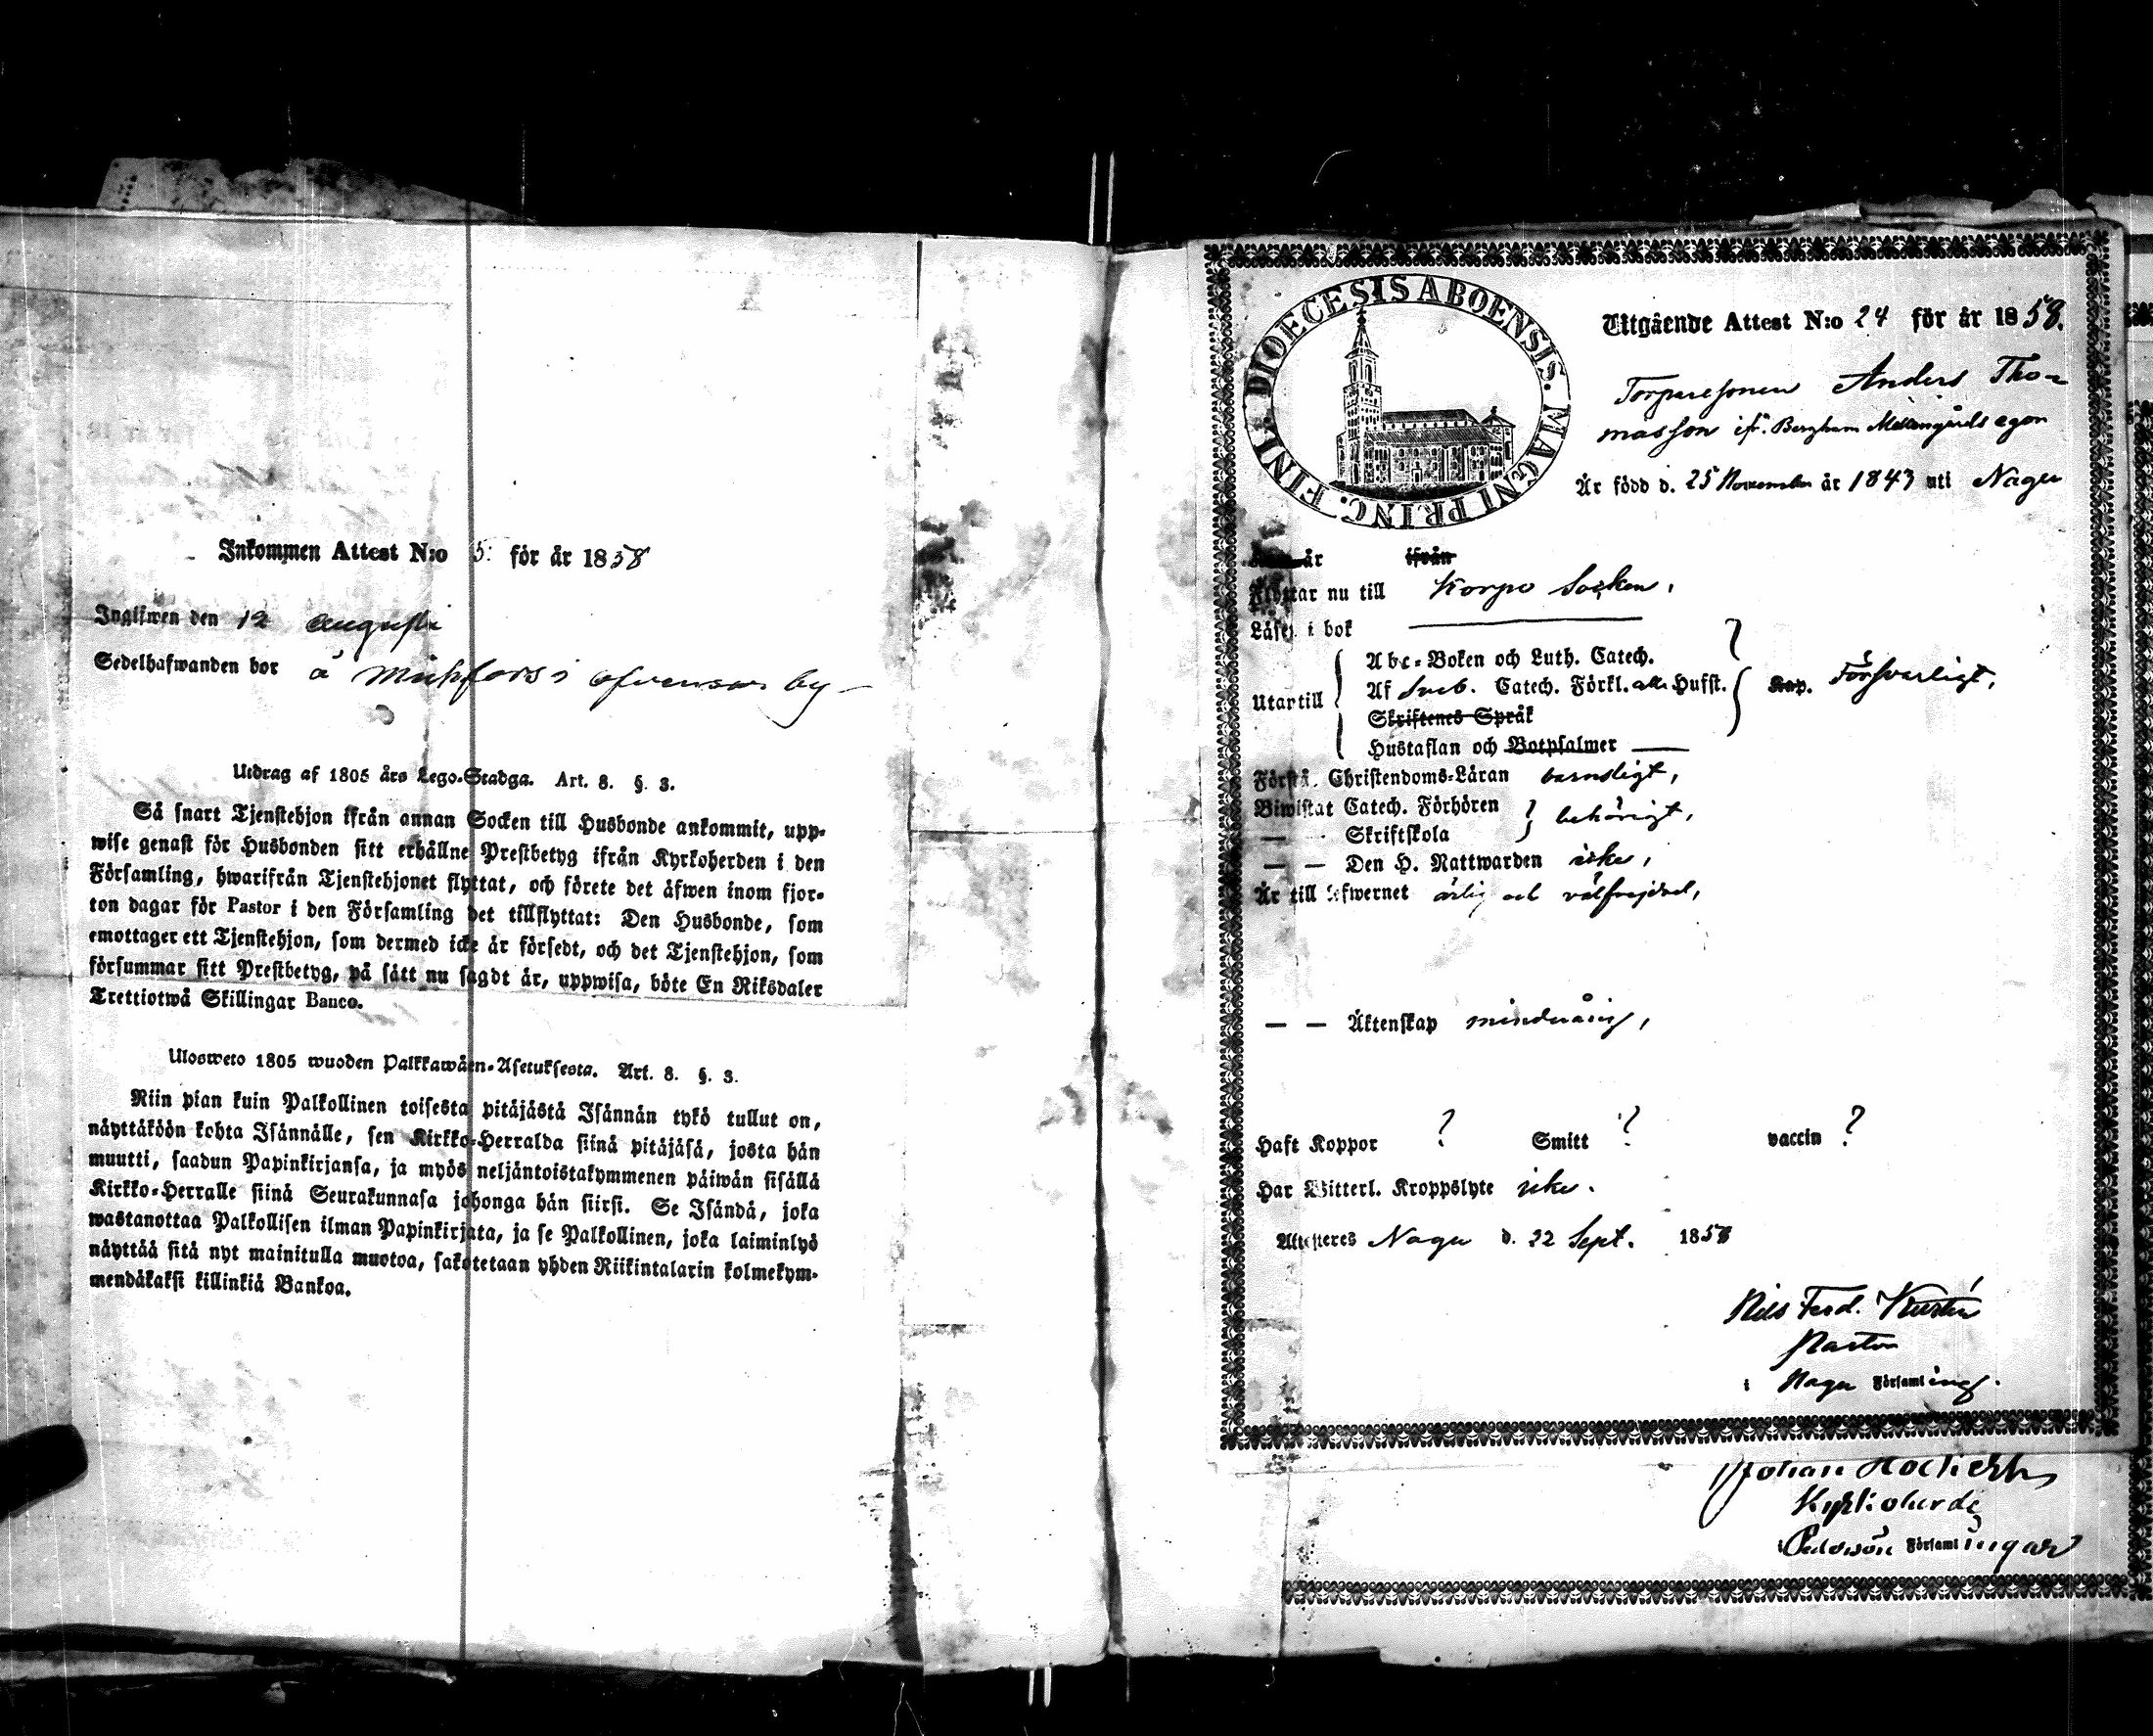 Inkommen Attest N:o 5: för år 1858
Inglifwen den 12 augusti
Sedelhafwanden bor å i by
Utdrag af 1805 års Lego-Stadga. Art. 8. §. 3.
Så snart Tjenstehjon ifrån annan Socken till Husbonde ankommit, upp-
wise genast för Husbonden sitt erhållne Prestbetyg ifrån Kyrkoherden i den
Församling, hwarifrån Tjenstehjonet flyttat, och förete det äfwen inom fjor-
ton dagar för Pastor i den Församling det tillflyttat: Den Husbonde, som
emottager ett Tjenstehjon, som dermed icke är försedt, och det Tjenstehjon, som
försummar sitt Prestbetyg, på sätt nu sagdt är, uppwisa, böte En Riksdaler
Trettiotwå Skillingar Banco.
Ulosweto 1805 wuoden Palkkawäen-Asetuksesta. Art. 8. §. 3.
Niin pian kuin Palkollinen toisesta pitäjästä Isännän tykö tullut on,
näyttäköön kohta Isännälle, sen Kirkko-Herralda siinä pitäjäsä, josta hän
muutti, saadun Papinkirjansa, ja myös neljäntoistakymmenen päiwän sisällä
Kirkko-Herralle siinä Seurakunnasa johonga hän siirsi. Se Isändä, joka
wastanottaa Palkollisen ilman Papinkirjata, ja se Palkollinen, joka laiminlyö
näyttää sitä nyt mainitulla muotoa, sakotetaan yhden Riikintalarin kolmekym-
mendäkaksi killinkiä Bankoa.
FINL. DIOECESIS ABOENSIS. MAGNI PRINC.
Utgående Attest N:o 24 för år 1858.
Torparesonen Anders Tho-
masson ifr. Bergham Mellangårds egor
Är född d. 25 November år 1843 uti Nagu
är ifrån
Flyttar nu till Korpo Socken,
Läser i bok
Abc-Boken och Luth. Catech. ?
Utantill Af Sveb. Catech. Förkl. alla Hufst. Kap. Försvarligt,
Skriftenes Språk
Hustaflan och Botpsalmer
Förstå. Christendoms-Läran barnsligt,
Biwistat Catech. Förhören
— — Skriftskola behörigt,
— — Den H. Nattwarden icke,
Är till lefwernet ärlig och välfrejdad,
— — Äktenskap minderårig,
Haft Koppor ? Smitt ? vaccin ?
Har Witterl. Kroppslyte icke.
Attesteres Nagu d. 22 Sept. 1858
Nils Ferd.
Pastor
i Nagu Församling.
Johan
Kyrkoherde
Församlingar